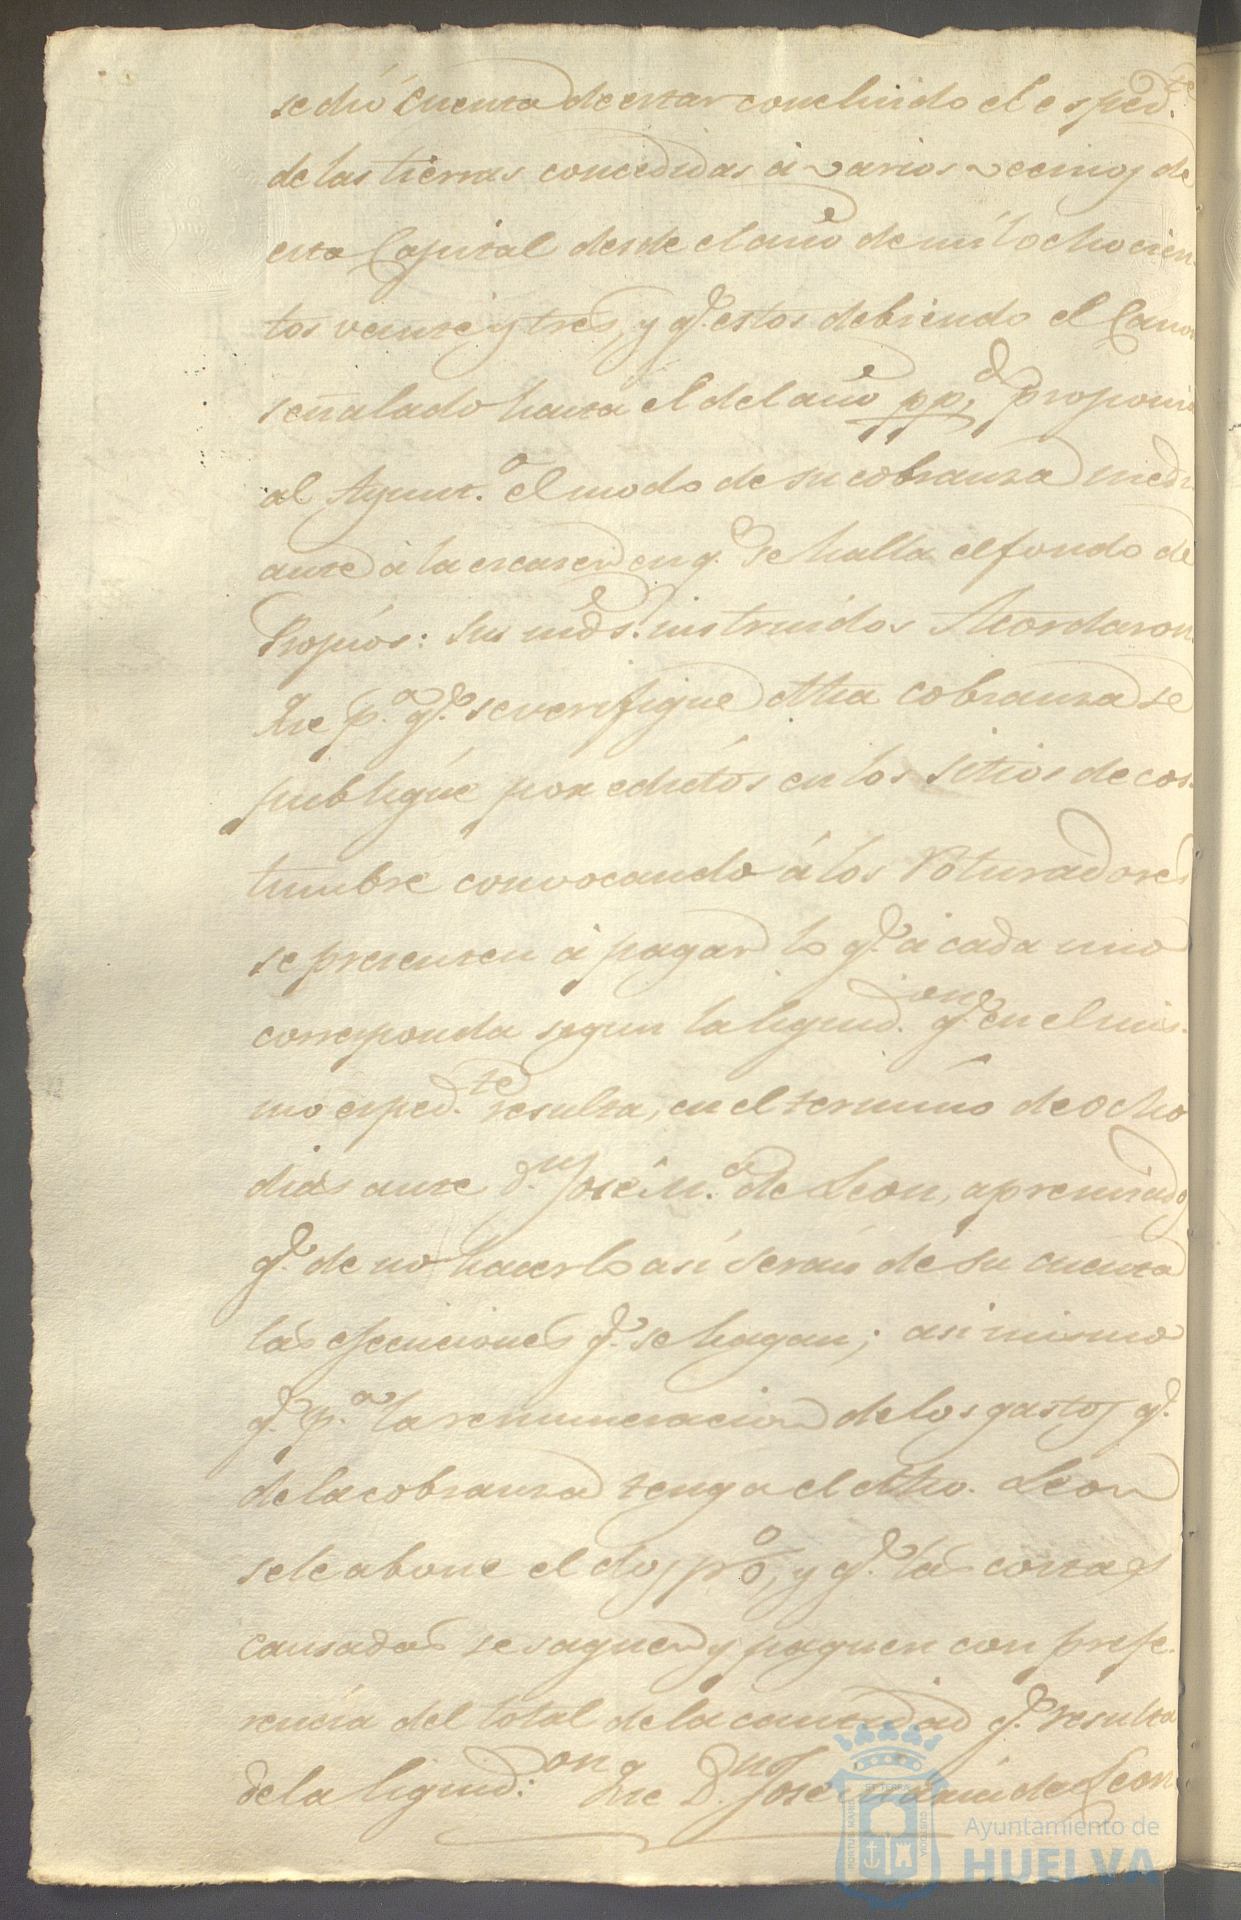 se dió Cuenta de estar concluido el esped.te
de las tierras concedidas á varios vecinos de
esta Capital desde el año de mil ochocien
tos veinte y tres, y q.e estos debiendo el Canon
señalado hasta el del año pp.do proponia
al Ayunt.o el modo de su cobranza medi
ante á la escasez en q.e se halla el fondo de
Propios: Sus mrds. instruidos Acordaron:
Que p.a q.e se verifique dha cobranza se
publique por edictos en los Sitios de cos-
tumbre convocando á los Roturadores
se presenten á pagar lo q.e á cada uno
corresponda segun la liquid.on q.e en el mis-
mo esped.te resulta, en el termino de ocho
dias ante d.n José M.a de Leon, apremiados
q.e de no hacerlo asi serán de su cuenta
las ejecuciones q.e se hagan; asi mismo
q.e p.a la renumeracion de los gastos q.e
de la cobranza tenga el dho. Leon
se le abone el dos p%, y q.e las costas
causadas se saquen y paguen con prefe-
rencia del total de la cantidad q.e resulta
de la liquid.on Que D.n José Maria de Leon
ET TERRAE
PORTUS MARIS
CUSTODIA
Ayuntamiento de
HUELVA